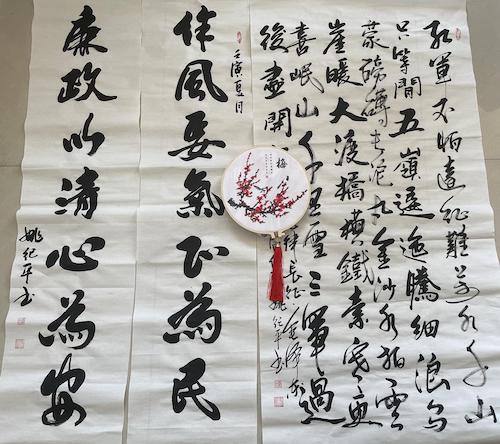 紅軍不怕遠征難萬水千山
只等間五嶺逶迤騰細浪烏
蒙磅礴走泥丸金沙水拍雲
崖暖大渡橋橫鐵索寒更
喜岷山千里雪三軍過
後盡開
詩長征
姚紀平書
梅
壬寅夏月
作風要氣正為民
廉政以清心為安
姚紀平書